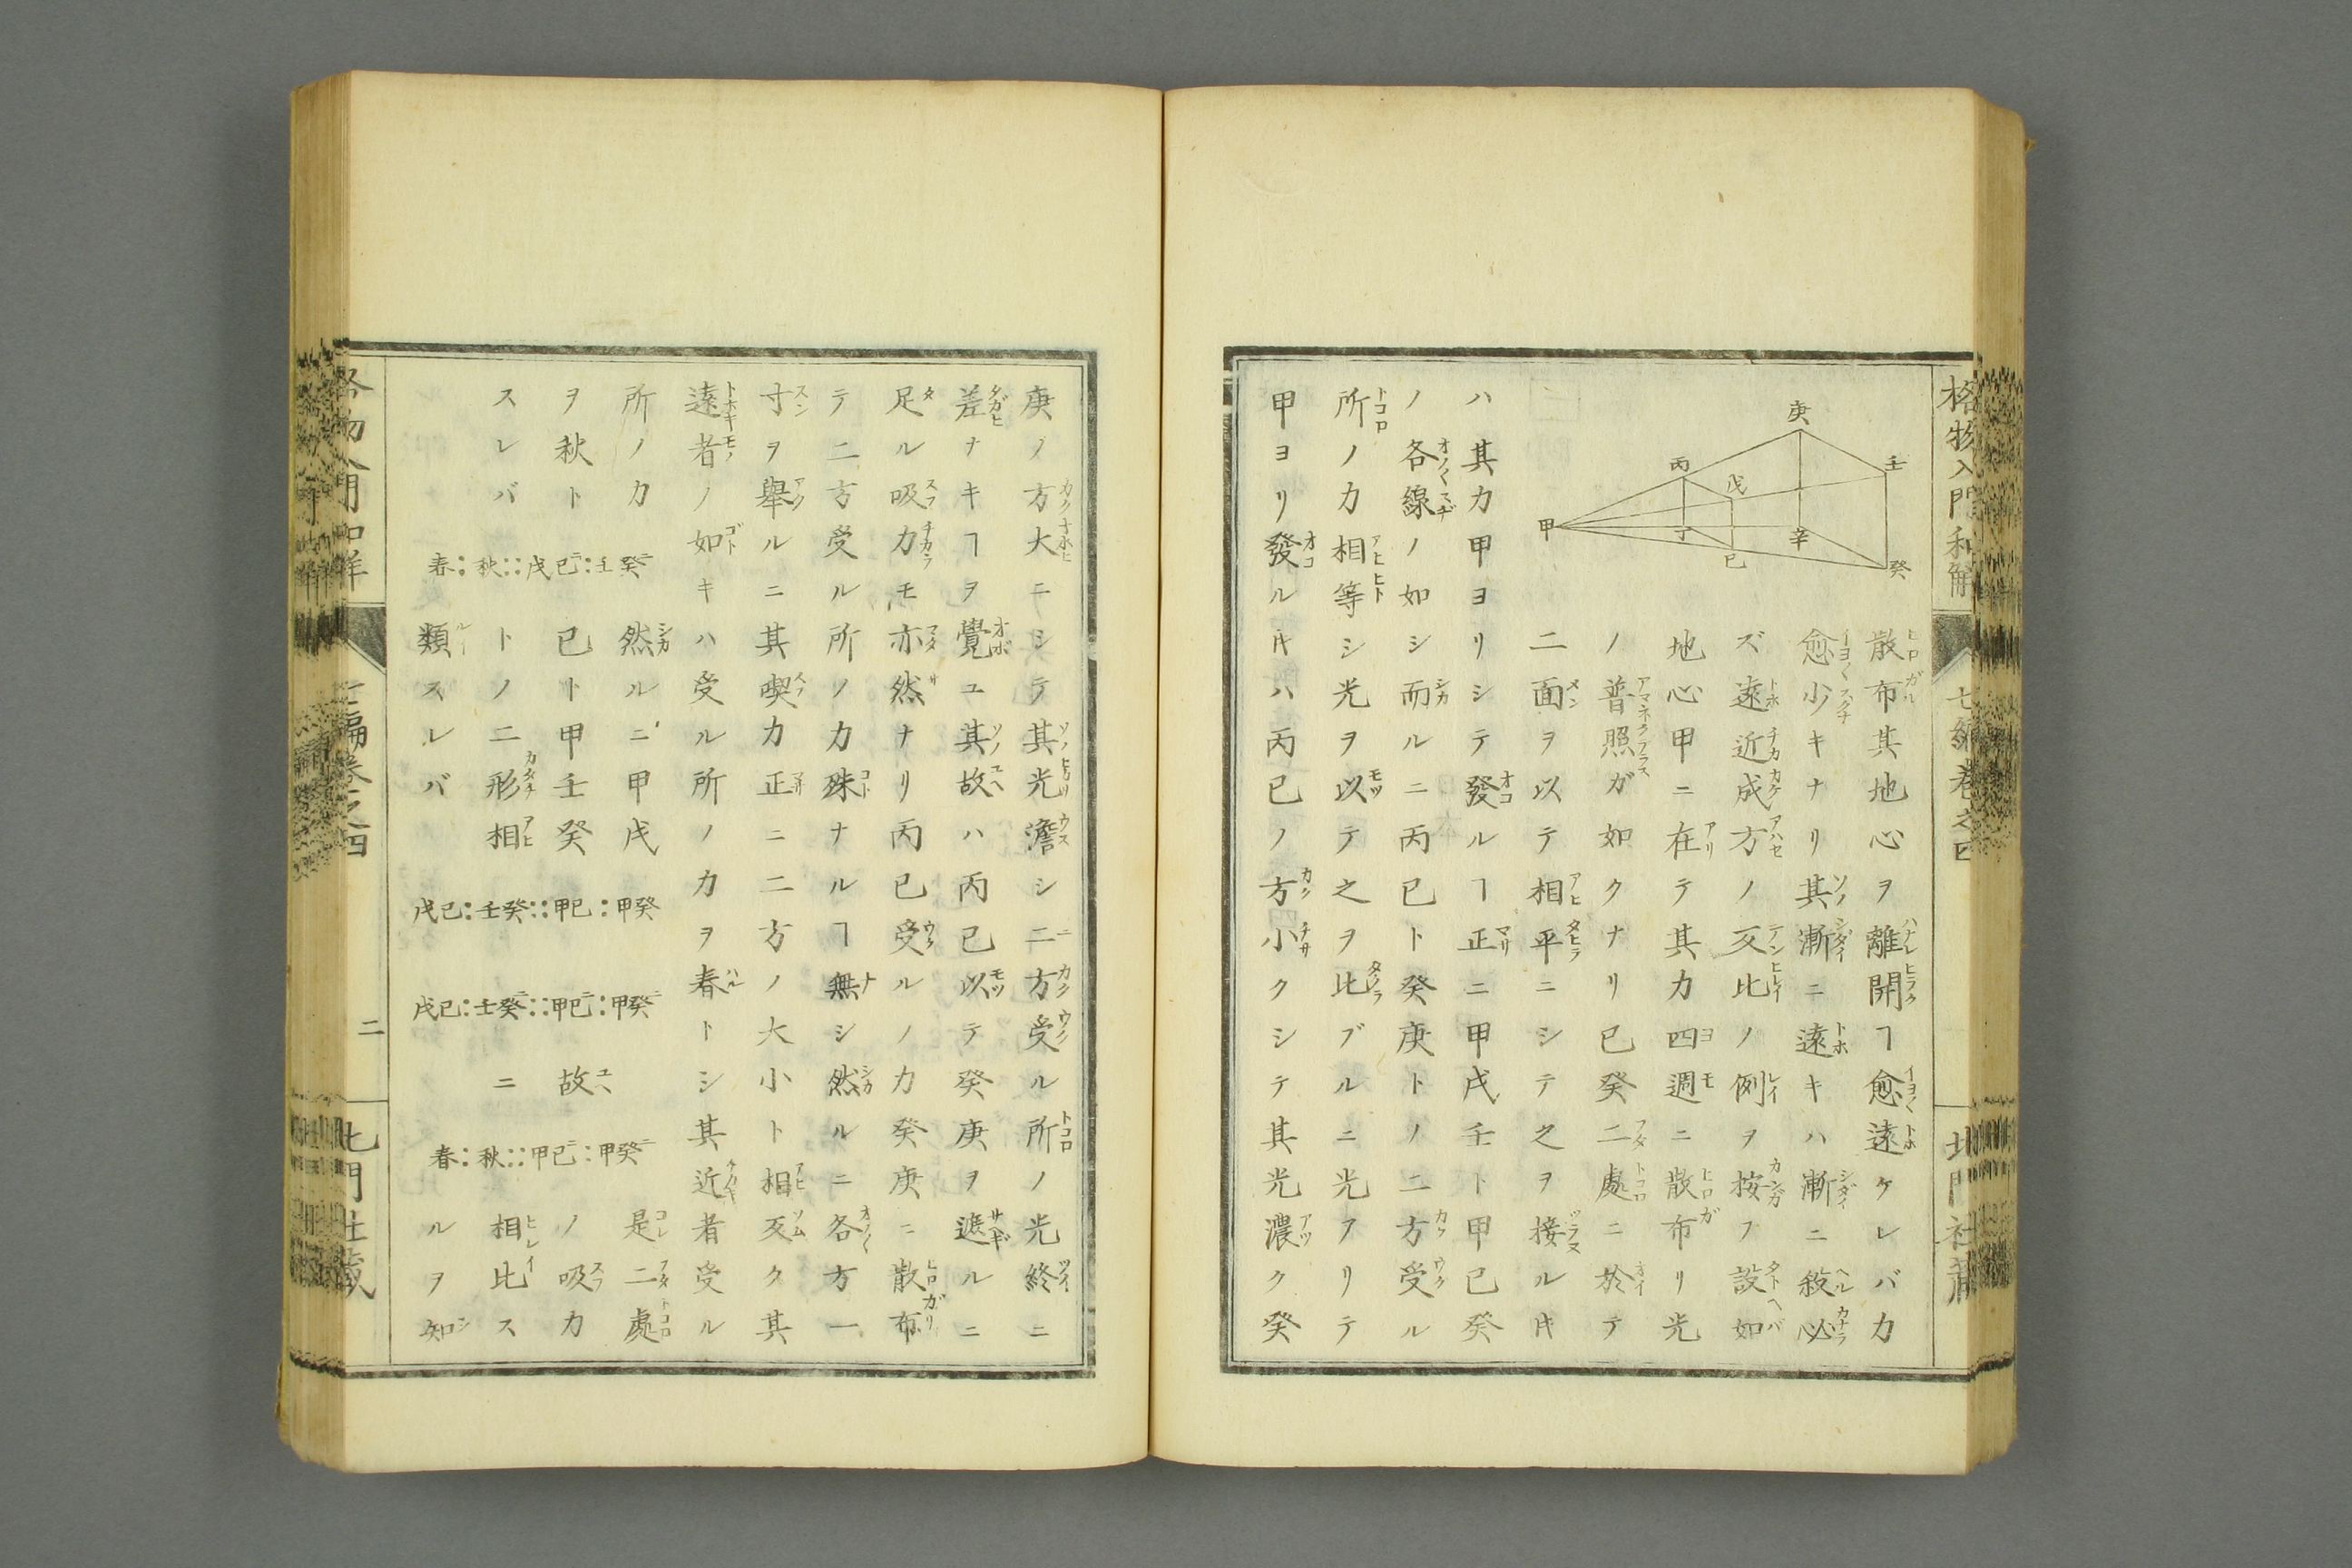 格物入門和解
七編巻之四
北門社蔵
庚
壬
丙
戊
甲
丁
辛
己
癸
散布其地心ヲ離開ヿ愈遠ケレバ力
愈少キナリ其漸ニ遠キハ漸ニ殺必
ズ遠近成方ノ反比ノ例ヲ按フ設如
地心甲ニ在テ其力四週ニ散布リ光
ノ普照ガ如クナリ己癸二處ニ於テ
二面ヲ以テ相平ニシテ之ヲ接ルキ
ハ其力甲ヨリシテ發ルヿ正ニ甲戊壬ト甲己癸
ノ各線ノ如シ而ルニ丙己ト癸庚トノ二方受ル
所ノ力相等シ光ヲ以テ之ヲ比ブルニ光アリテ
甲ヨリ發ルキハ丙己ノ方小クシテ其光濃ク癸
庚ノ方大ニシテ其光澹シ二方受ル所ノ光終ニ
差ナキヿヲ覺ユ其故ハ丙己以テ癸庚ヲ遮ルニ
足ル吸力モ亦然ナリ丙己受ルノ力癸庚ニ散布
テ二方受ル所ノ力殊ナルヿ無シ然ルニ各方一
寸ヲ舉ルニ其喫力正ニ二方ノ大小ト相反ク其
遠者ノ如キハ受ル所ノ力ヲ春トシ其近者受ル
所ノ力
ヲ秋ト
スレバ
春:秋::戊己二:壬癸二
然ルニ甲戊
己ト甲壬癸
トノ二形相
類スレバ
戊己:壬癸::甲己:甲癸
戊己:壬癸二::甲己二:甲癸二
故
ニ
春:秋::甲己二:甲癸二
是二處
ノ吸力
相比ス
ルヲ知
格物入門和解
七編巻之四
二
北門社蔵